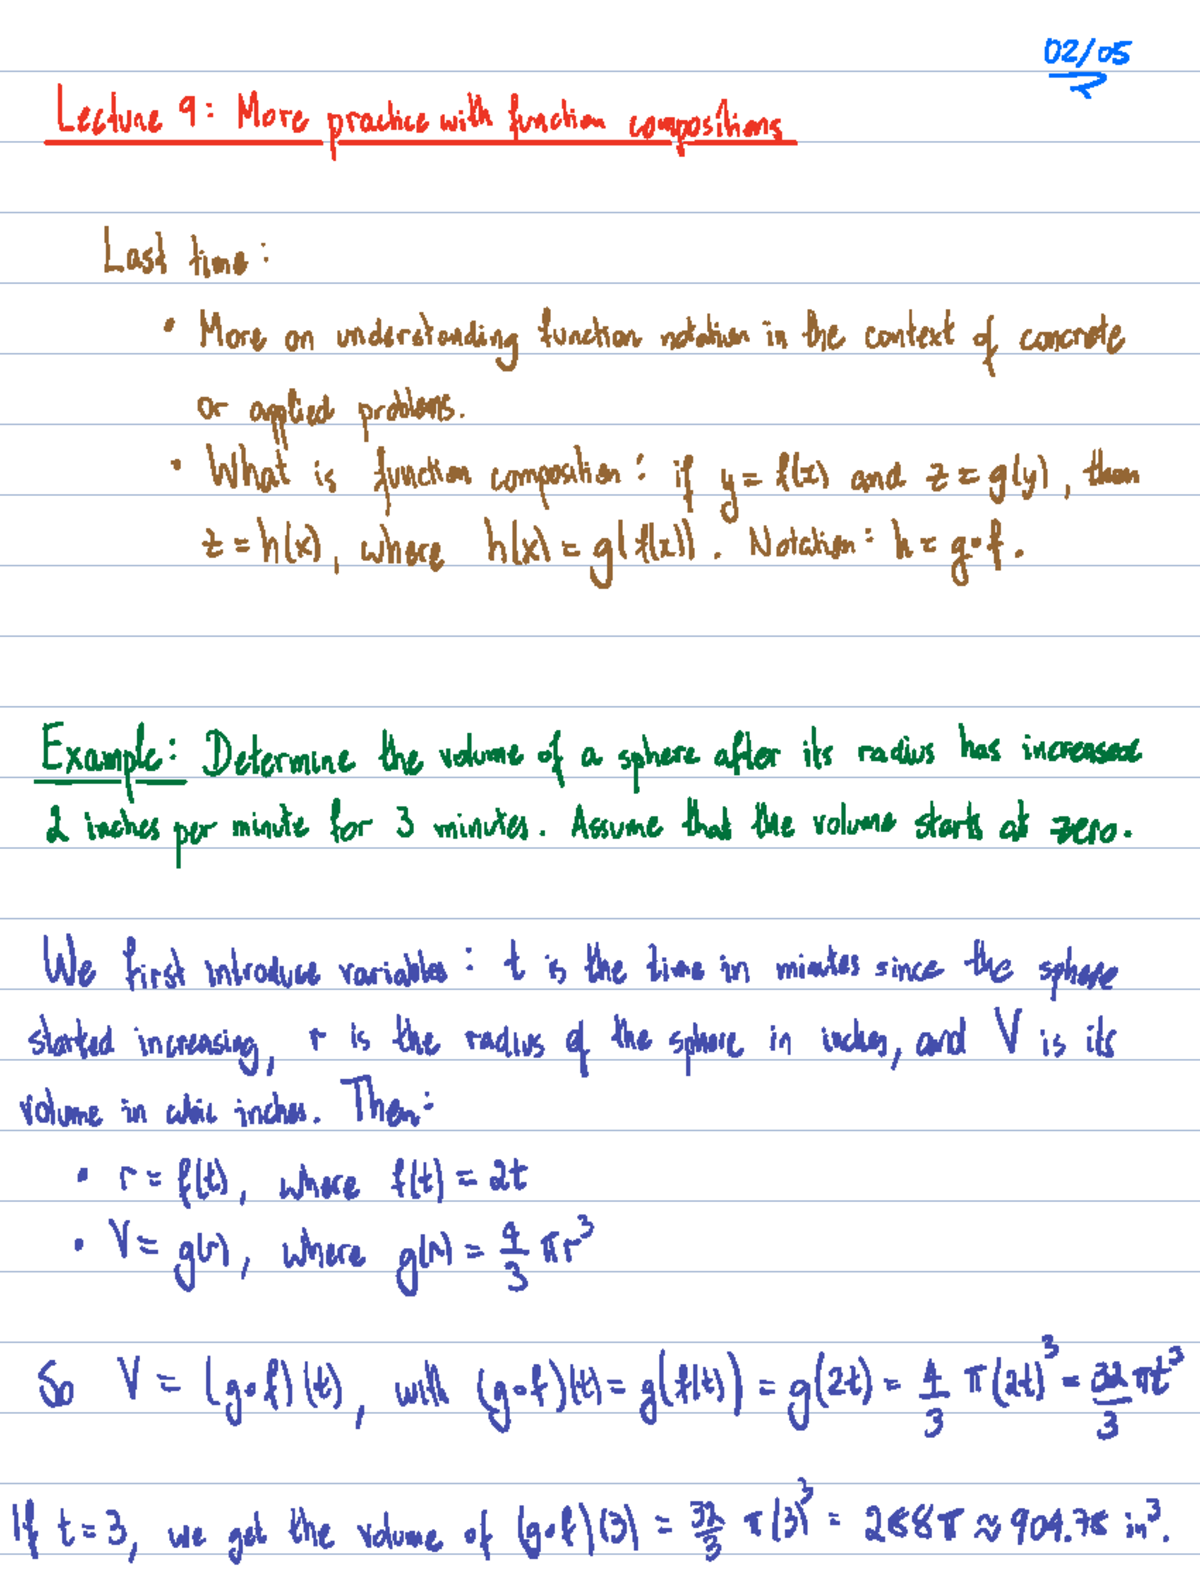 02/05
Lecture 9: More practice with function compositions
Last time:
• More on understanding function notation in the context of concrete
or applied problems.
• What is function composition: if y = f(x) and z = g(y), then
z = h(x), where h(x) = g(f(x)). Notation: h = g∘f.
Example: Determine the volume of a sphere after its radius has increased
2 inches per minute for 3 minutes. Assume that the volume starts at zero.
We first introduce variables: t is the time in minutes since the sphere
started increasing, r is the radius of the sphere in inches, and V is its
volume in cubic inches. Then:
• r = f(t), where f(t) = 2t
• V = g(r), where g(r) = 4/3 πr³
So V = (g∘f)(t), with (g∘f)(t) = g(f(t)) = g(2t) = 4/3 π(2t)³ = 32/3 πt³
If t = 3, we get the volume of (g∘f)(3) = 32/3 π(3)³ = 288π ≈ 904.78 in³.